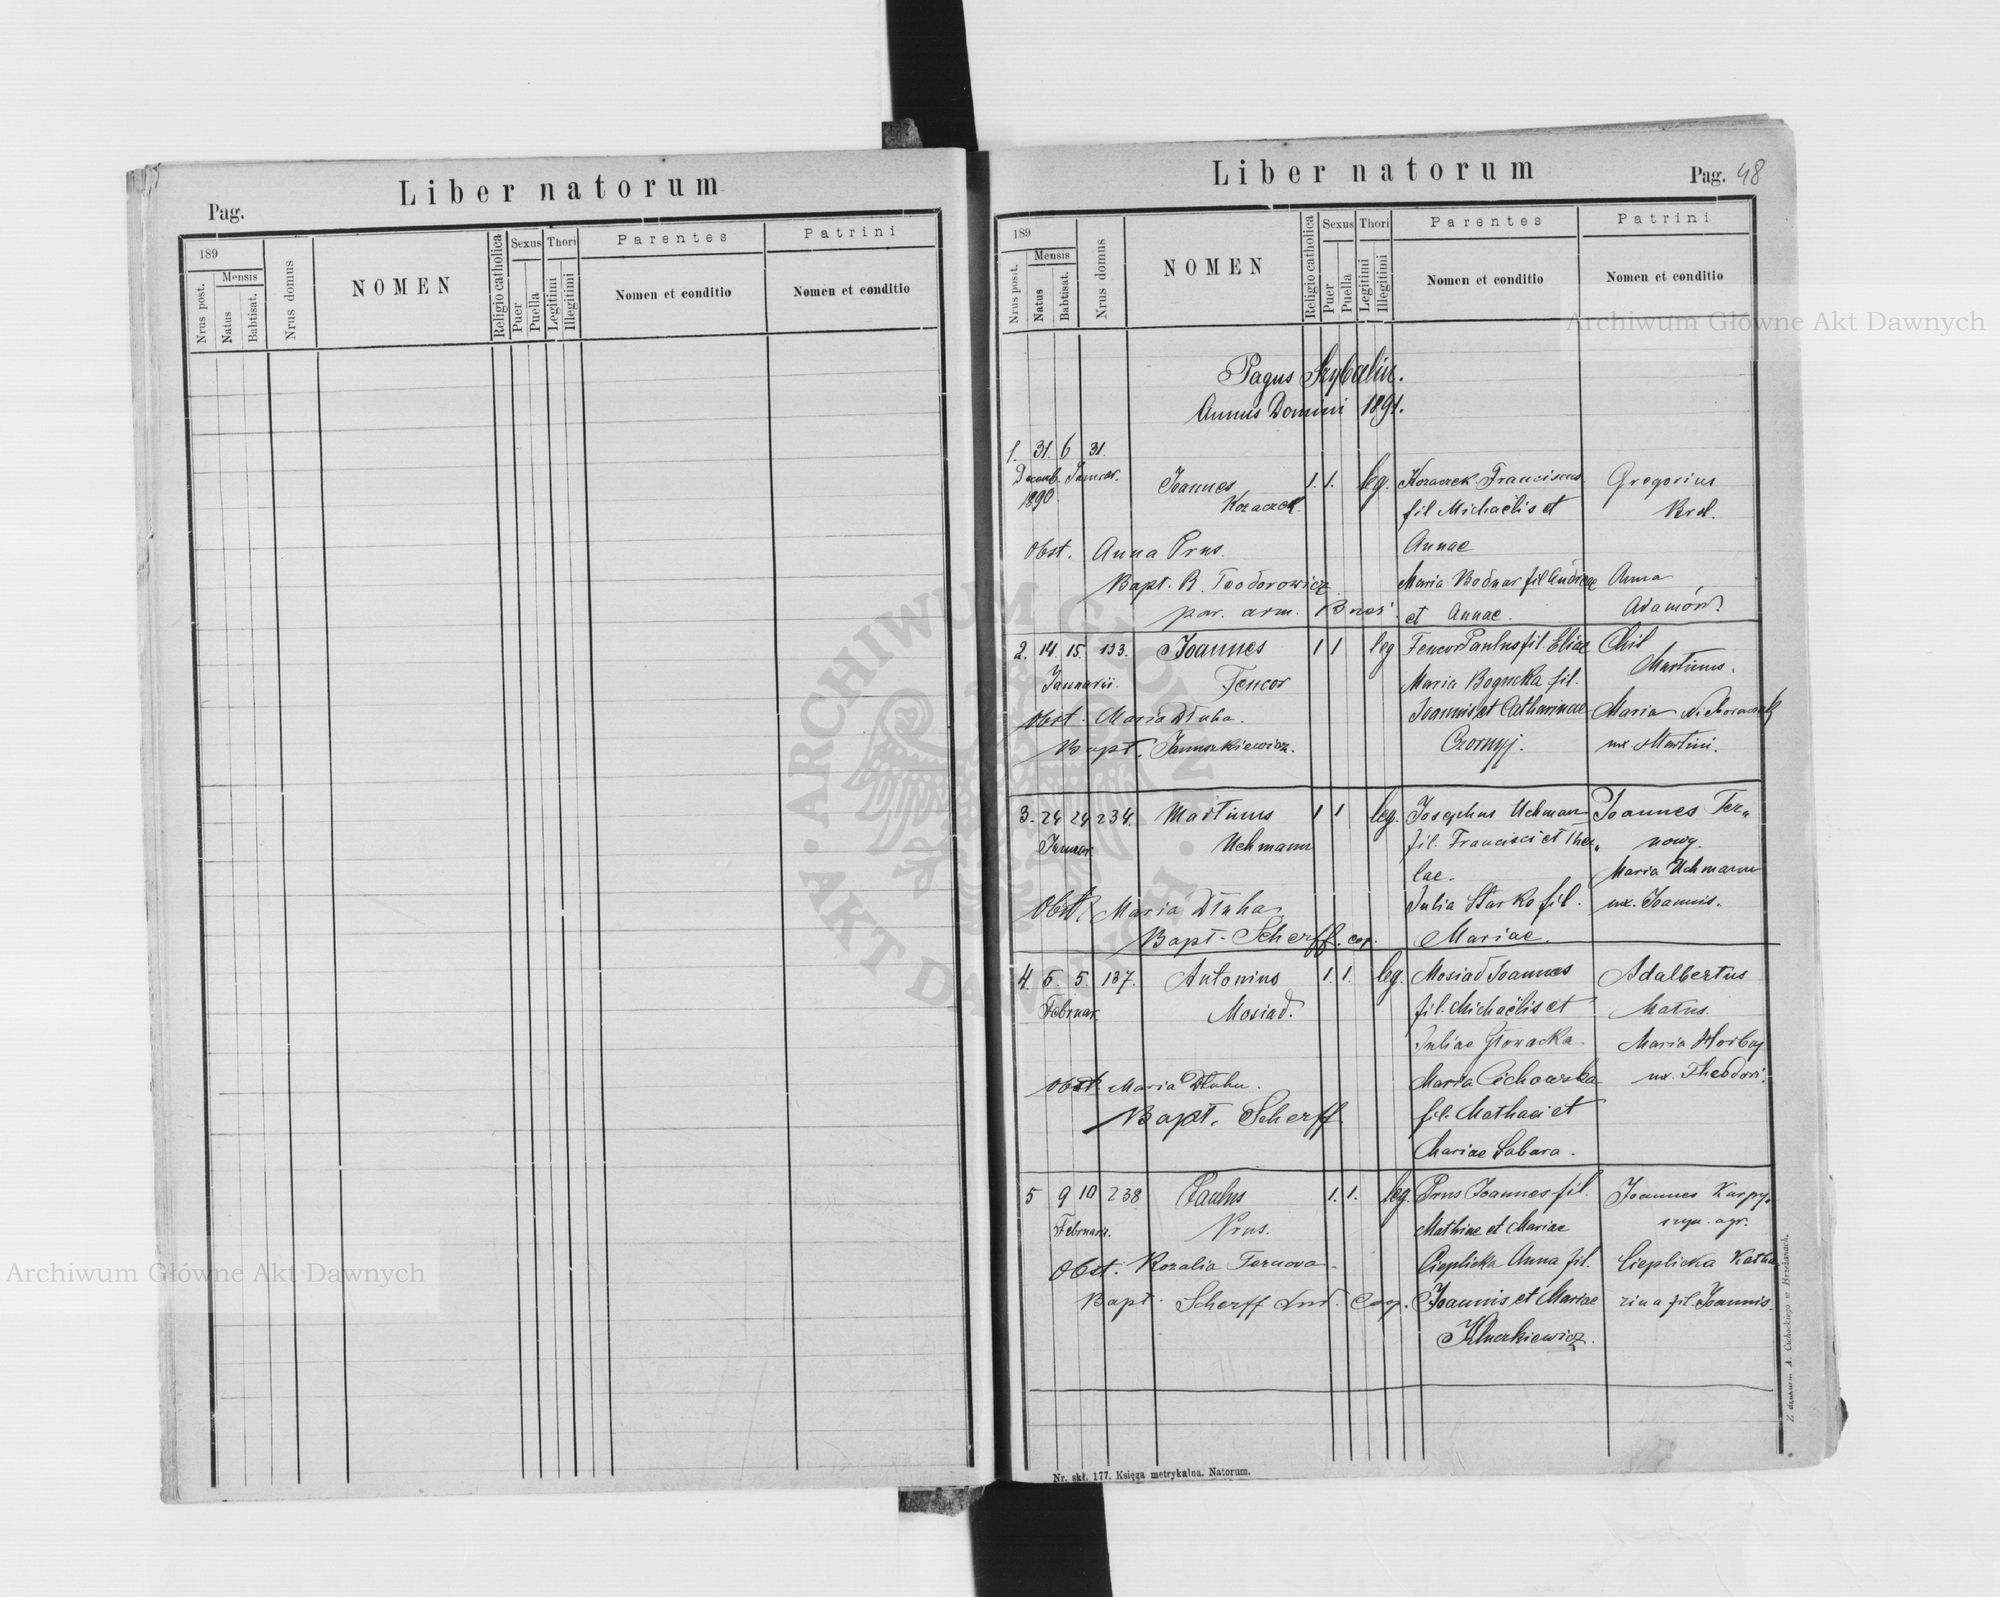 Liber natorum
Pag.
189
Mensis
Nrus post.
Natus
Babtisat.
Nrus domus
NOMEN
Religio catholica
Sexus
Puer
Puella
Thori
Legitimi
Illegitimi
Parentes
Nomen et conditio
Patrini
Nomen et conditio
Liber natorum
Pag. 48
189
Mensis
Nrus posit.
Natus
Babtisat.
Nrus domus
NOMEN
Religio catholica
Sexus
Puer
Puella
Thori
Legitimi
Illegitimi
Parentes
Nomen et conditio
Patrini
Nomen et conditio
Pagus Szybalin.
Annus Domini 1891.
1. 31. 6 31.
Decemb. Januar. Joannes 1. 1. leg. Kozaczek Franciscus Gregorius
1890 Kozaczek. fil Michaëlis et Krol.
Obst. Anna Prus. Annae
Bapt. R. Teodorowicz Maria Bodnar fil Andreae Anna
par. arm. Brzeż. et Annae. Adamów.
2. 14. 15. 133. Joannes 1 1 leg Fencor Paulus fil. Eliae Chil
Januarii. Fencor Maria Bogucka fil. Martinus.
Obst. Maria Dłuha. Joannis et Catharinae Maria
Bapt. Januszkiewicz. Czornyj. ux. Martini.
3. 24 24 234. Martinus 1 1 leg. Josephus Uchman Joannes Ter„
Januar Uchmann fil. Francisci et The„ nowy.
lae. Maria Uchmann
Obst. Maria Dłuha Julia Starko fil. ux. Joannis.
Bapt. Scherff. cop. Mariae.
4. 5. 5. 137. Antonius 1. 1. leg. Mosiad Joannes Adalbertus
Februar. Mosiad. fil. Michaëlis et Matus.
Juliae Głowacka. Maria Horbaj
Obst. Maria Dłuha. Maria Cichowska ux. Theodori.
Bapt. Scherff fil. Mathaei et
Mariae Sabara.
5 9 10 238 Paulus 1. 1. leg. Prus Joannes fil. Joannes Karpy„
Februarii. Prus. Mathiae et Mariae szyn. agr.
Obst. Rozalia Ternova. Cieplicka Anna fil. Cieplicka Katha
Bapt. Scherff Lud. Coop. Joannis et Mariae rina fil. Joannis.
Kluczkiewicz.
Nr. skł. 177. Księga metrykalna. Natorum.
Z drukarni A. Cichockiego w Brzeżanach.
Archiwum Główne Akt Dawnych
Archiwum Główne Akt Dawnych
ARCHIWUM GŁÓWNE AKT DAWNYCH